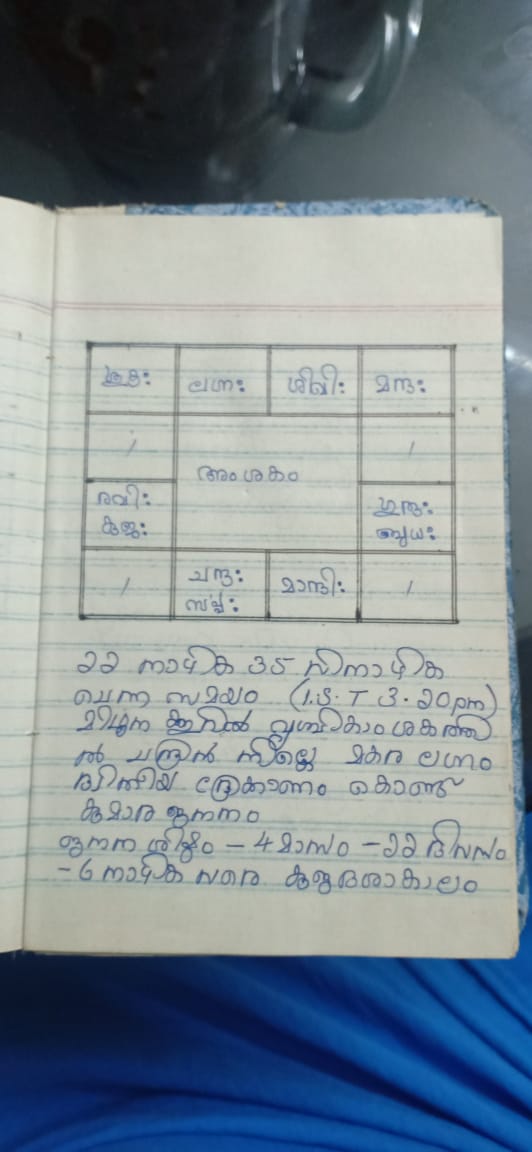 ശുക്രഃ ലഗ്നഃ ശിഖിഃ മന്ദഃ
അംശകം
രവിഃ
കുജഃ
ഗുരുഃ
ബുധഃ
ചന്ദ്രഃ
സർപ്പഃ
മാന്ദിഃ
22 നാഴിക 35 വിനാഴിക
ചെന്ന സമയം (I.S.T 3.20pm)
മിഥുന കൂറിൽ വൃശ്ചികാംശകത്തി
ൽ ചന്ദ്രൻ നില്ക്കെ മകര ലഗ്നം
ദ്വിതീയ ദ്രേക്കാണം കൊണ്ട്
കുമാര ജനനം
ജനന ശിഷ്ടം - 4 മാസം - 22 ദിവസം
- 6 നാഴിക വരെ കുജദശാകാലം